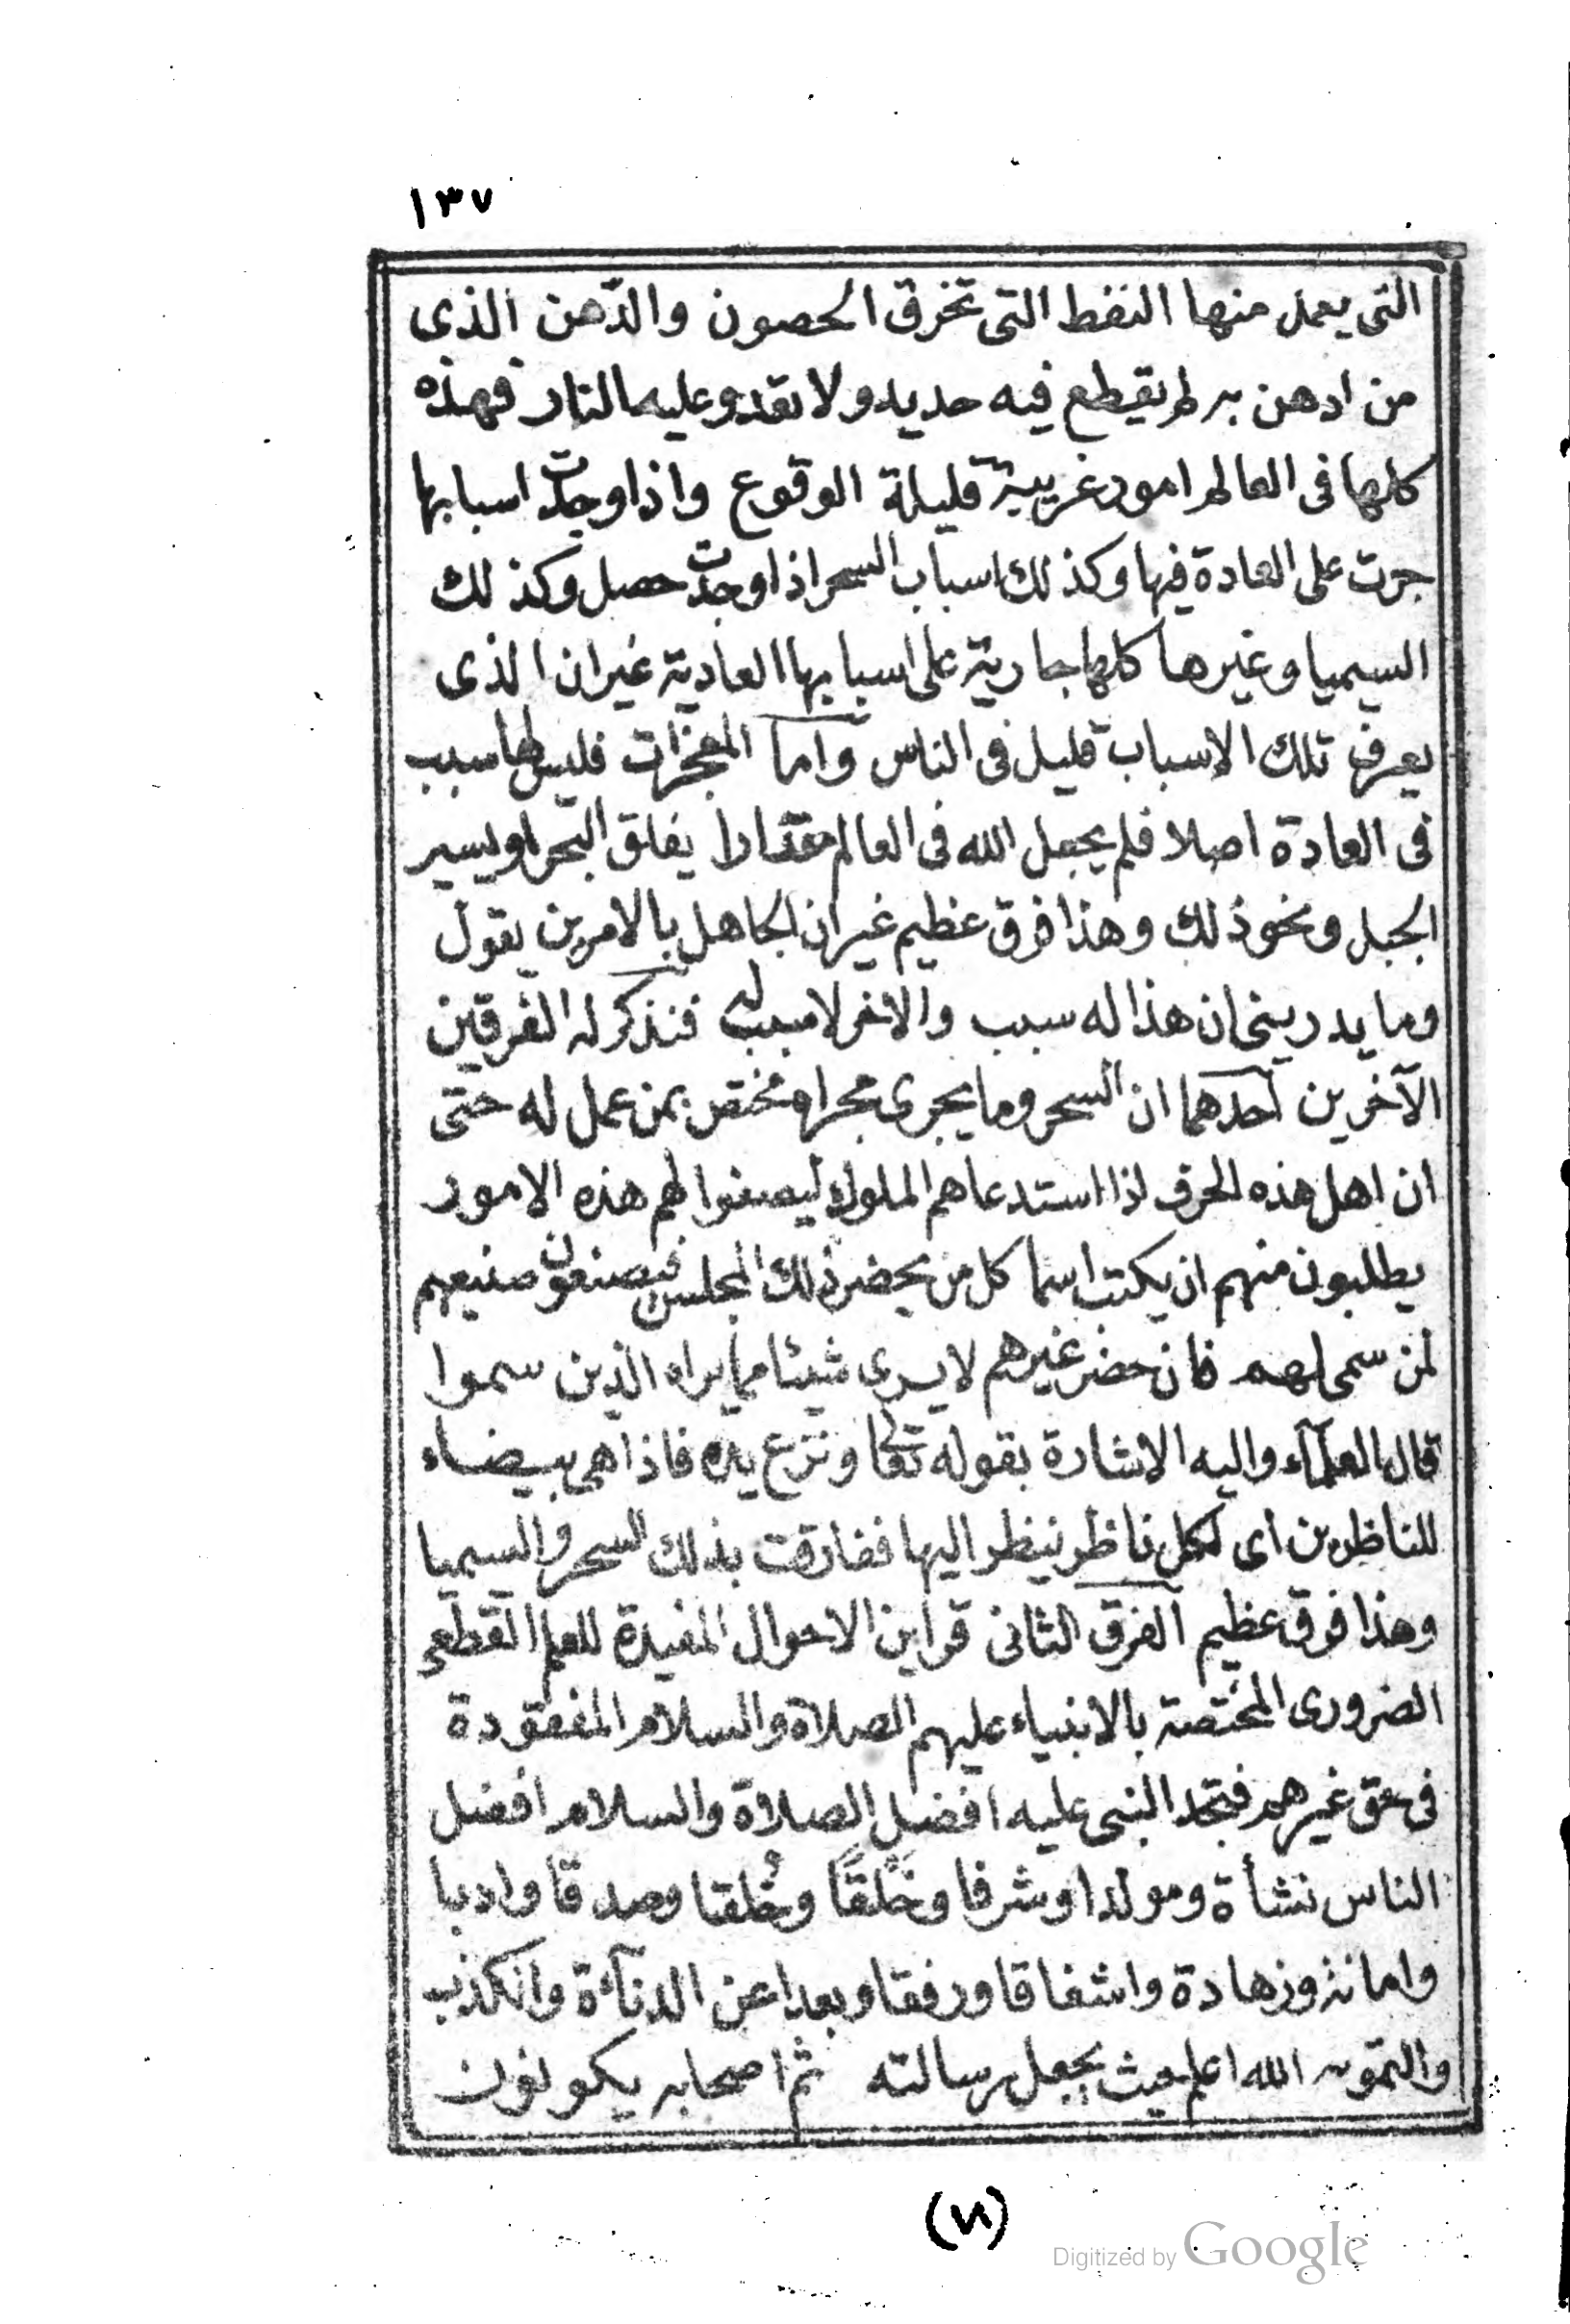 ١٣٧
التى يعمل منها النفط التى تخرق الحصون والدّهن الذى
من ادهن به لم يقطع فيه حديد ولا تقدو عليه النار فهذه
كلها فى العالم امور غريبة قليلة الوقوع واذا وجدت اسبابها
جرت على العادة فيها وكذلك اسباب السحر اذا وجدت حصل وكذلك
السيميا وغيرها كلها جارية على اسبابها العادية غير ان الذى
يعرف تلك الاسباب قليل فى الناس وآما المعجزات فليس لها سبب
فى العادة اصلا فلم يجعل الله فى العالم مقدارا يفلق البحر او يسير
الجبل ونحو ذلك وهذا فرق عظيم غير ان الجاهل بالامرين يقول
وما يدرينى ان هذا له سبب والاخر لا سبب له فنذكر له الفرقين
الآخرين آحدهما ان السحر وما يجرى مجراه مختص بمن عمل له حتى
ان اهل هذه الحرف اذا استدعاهم الملوك ليصنعوا لهم هذه الامور
يطلبون منهم ان يكتب اسما كل من يحضر ذلك المجلس فيصنعون صنيعهم
لمن سمى لهم فان حضر غيرهم لا يرى شيئا مما يراه الذين سموا
قال العلمآء واليه الاشارة بقوله تعالى ونزع يده فاذا هى بيضاء
للناظرين اى لكل ناظر ينظر اليها ففارقت بذلك السحر والسيميا
وهذا فرق عظيم آلفرق الثانى قراين الاحوال المفيدة للعلم القطعى
الضرورى المختصة بالانبياء عليهم الصلاة والسلام المفقودة
فى حق غيرهم فتجد النبى عليه افضل الصلاة والسلام افضل
الناس نشأة ومولدا وشرفا وخَلقًا وخُلقا وصدقا وادبا
وامانة وزهادة واشفاقا ورفقا وبعدا عن الدنآءة والكذب
والتمويه الله اعلم حيث يجعل رسالته ثم اصحابه يكونون
Digitized by Google